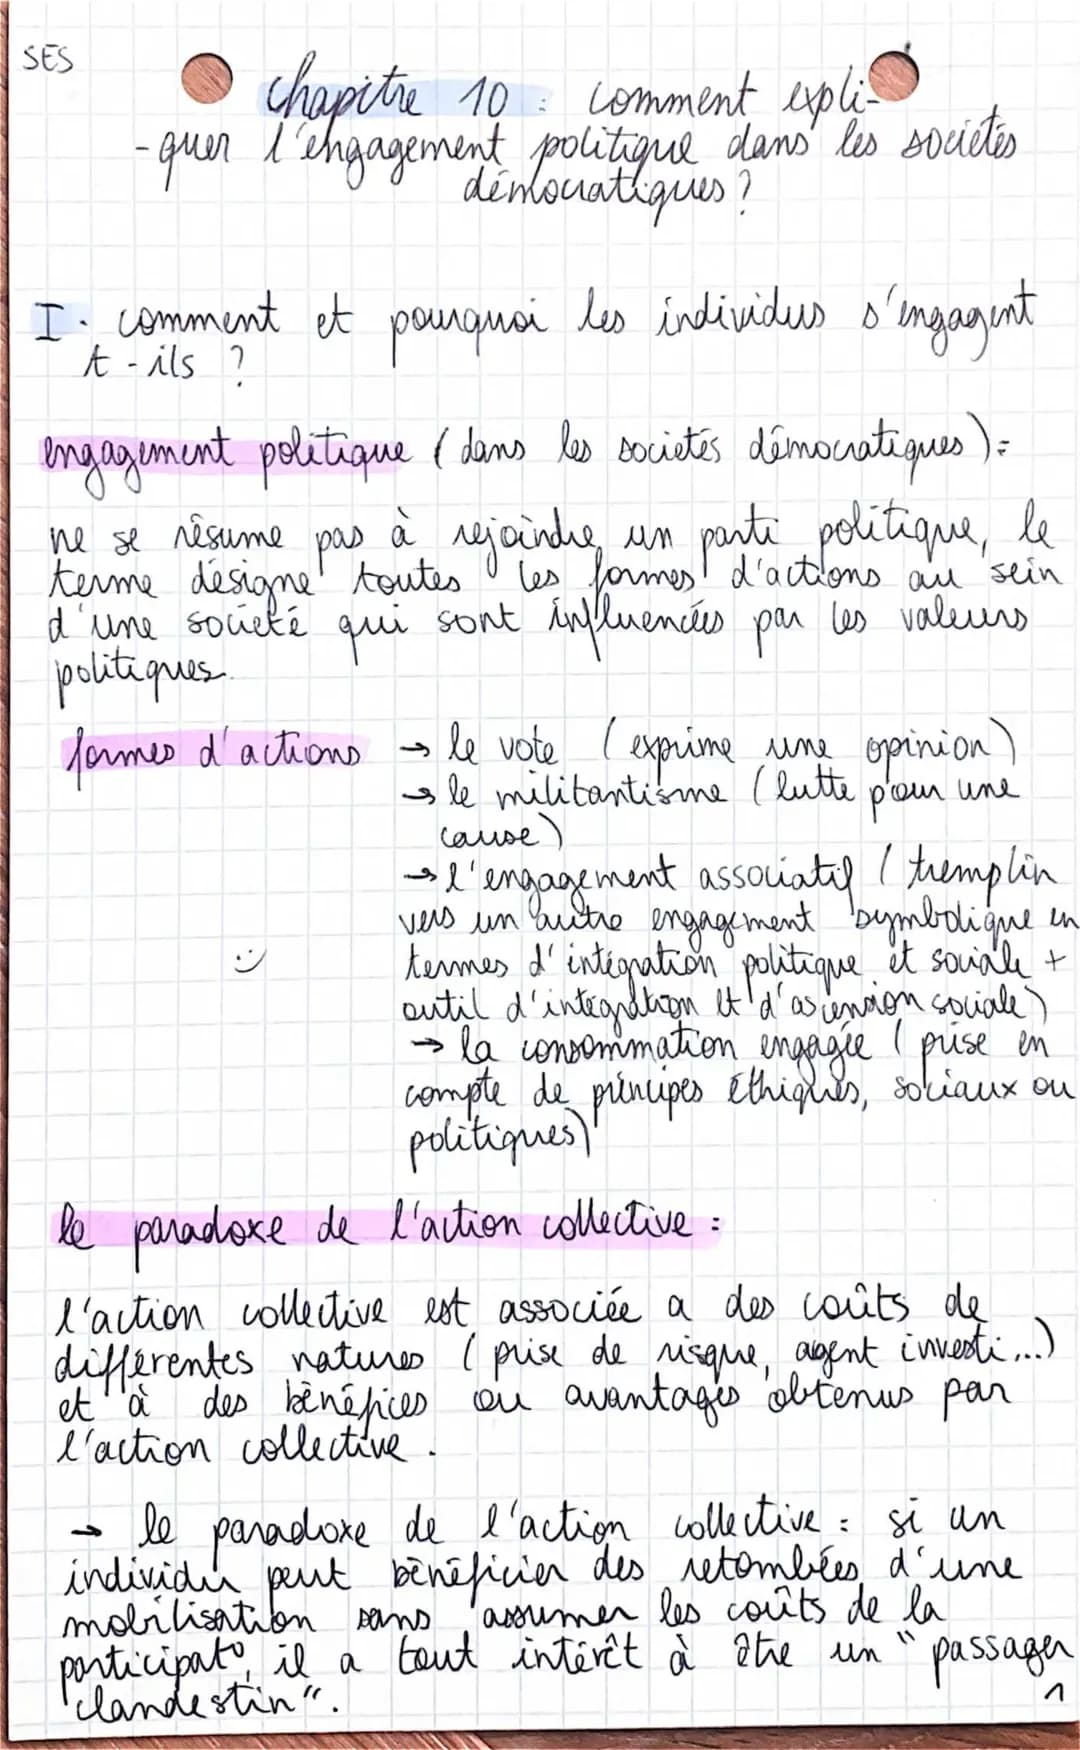 SES
Chapitre 10 : comment expli-
-quer l'engagement politique dans les sociétés
démocratiques ?
I. comment et pourquoi les individus s'engagent
t-ils ?
engagement politique (dans les sociétés démocratiques) :
ne se résume pas à rejoindre un parti politique, le
terme désigne toutes les formes d'actions au sein
d'une société qui sont influencées par les valeurs
politiques.
formes d'actions → le vote (exprime une opinion)
→ le militantisme (lutte pour une
cause)
→ l'engagement associatif (tremplin
vers un autre engagement symbolique en
termes d'intégration politique et sociale +
outil d'intégration et d'ascension sociale)
:)
→ la consommation engagée (prise en
compte de principes éthiques, sociaux ou
politiques)
le paradoxe de l'action collective :
l'action collective est associée a des coûts de
différentes natures (prise de risque, argent investi...)
et à des bénéfices ou avantages obtenus par
l'action collective.
→ le paradoxe de l'action collective : si un
individu peut bénéficier des retombées d'une
mobilisation sans assumer les coûts de la
participat°, il a tout intérêt à être un "passager
clandestin".
1